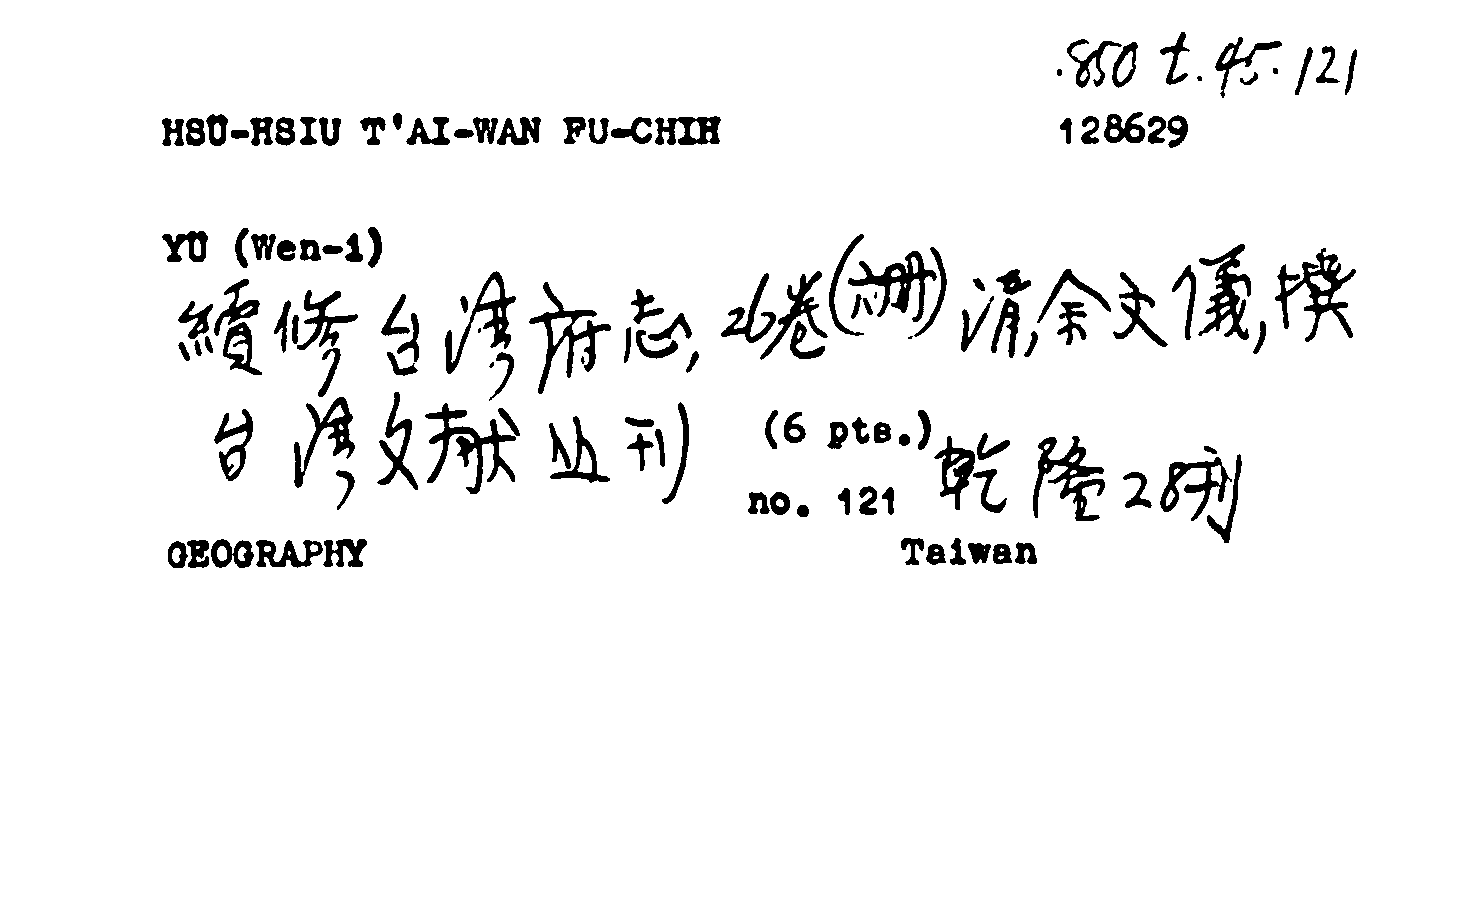 .850 t.45.121
HSÜ-HSIU T'AI-WAN FU-CHIH 128629
YÜ (Wen-i)
續修台湾府志, 26卷(六册) 清,余文儀,撰
台湾文献丛刊 (6 pts.)
no. 121 乾隆28刊
GEOGRAPHY Taiwan